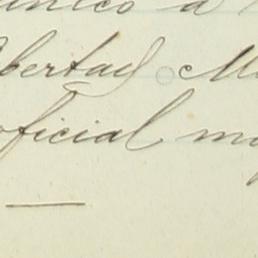 unico a
libertad M
oficial m